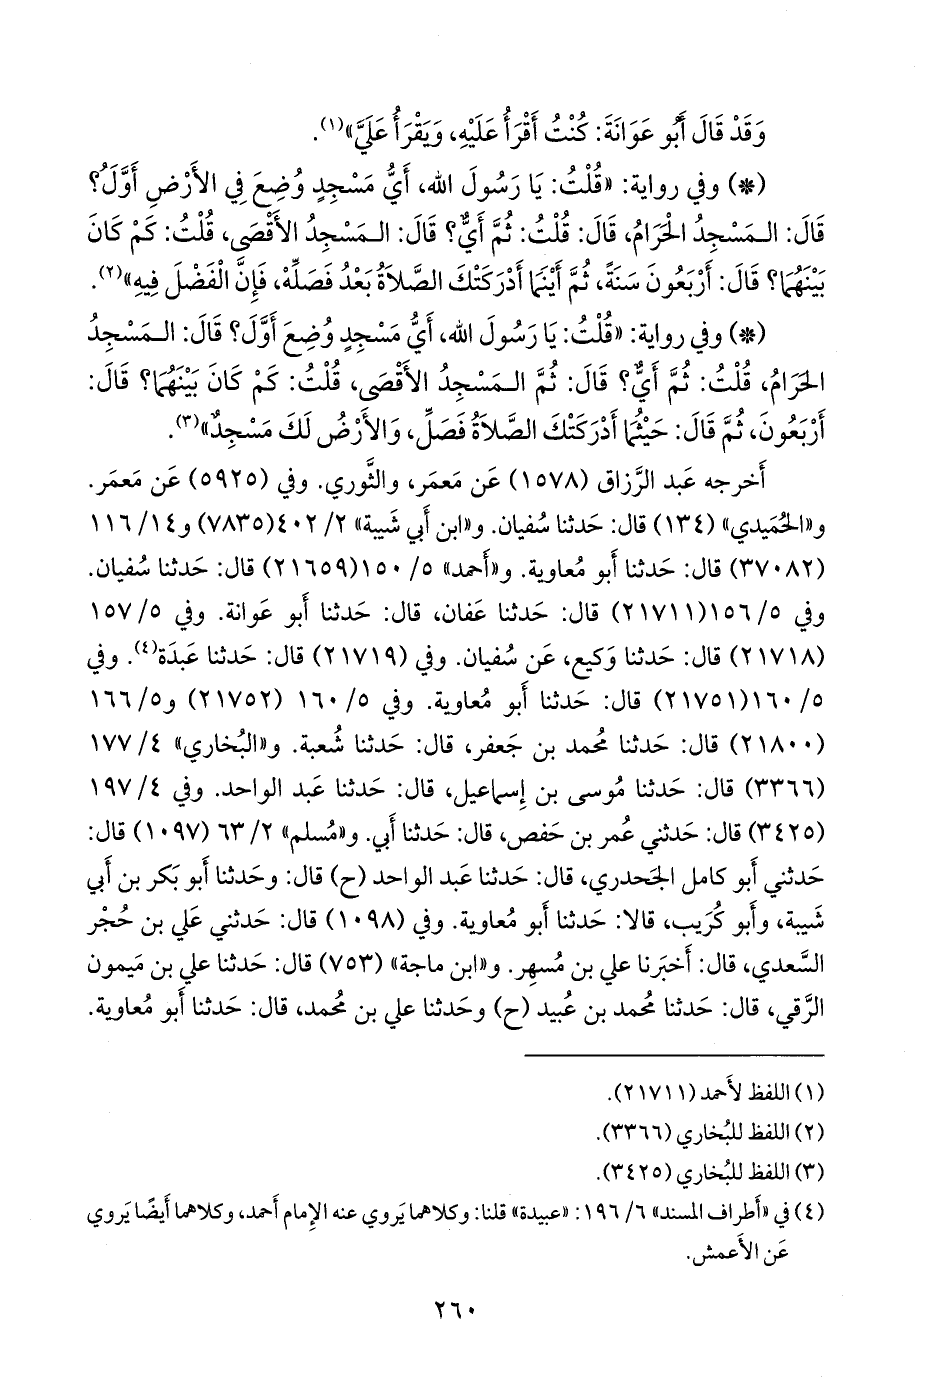 وَقَدْ قَالَ أَبُو عَوَانَةَ: كُنْتُ أَقْرَأُ عَلَيْهِ، وَيَقْرَأُ عَلَيَّ»(١).
(*) وفي رواية: «قُلْتُ: يَا رَسُولَ الله، أَيُّ مَسْجِدٍ وُضِعَ فِي الأَرْضِ أَوَّلَ؟
قَالَ: المَسْجِدُ الحَرَامُ، قَالَ: قُلْتُ: ثُمَّ أَيٌّ؟ قَالَ: المَسْجِدُ الأَقْصَى، قُلْتُ: كَمْ كَانَ
بَيْنَهُمَا؟ قَالَ: أَرْبَعُونَ سَنَةً، ثُمَّ أَيْنَمَا أَدْرَكَتْكَ الصَّلاَةُ بَعْدُ فَصَلِّهْ، فَإِنَّ الْفَضْلَ فِيهِ»(٢).
(*) وفي رواية: «قُلْتُ: يَا رَسُولَ الله، أَيُّ مَسْجِدٍ وُضِعَ أَوَّلَ؟ قَالَ: المَسْجِدُ
الحَرَامُ، قُلْتُ: ثُمَّ أَيٌّ؟ قَالَ: ثُمَّ المَسْجِدُ الأَقْصَى، قُلْتُ: كَمْ كَانَ بَيْنَهُمَا؟ قَالَ:
أَرْبَعُونَ، ثُمَّ قَالَ: حَيْثُمَا أَدْرَكَتْكَ الصَّلاَةُ فَصَلِّ، وَالأَرْضُ لَكَ مَسْجِدٌ»(٣).
أَخرجه عَبد الرَّزاق (١٥٧٨) عَن مَعمَر، والثَّوري. وفي (٥٩٢٥) عَن مَعمَر.
و«الحُمَيدي» (١٣٤) قال: حَدثنا سُفيان. و«ابن أَبي شَيبة» ٢/ ٤٠٢(٧٨٣٥) و١٤/ ١١٦
(٣٧٠٨٢) قال: حَدثنا أَبو مُعاوية. و«أَحمد» ٥/ ١٥٠(٢١٦٥٩) قال: حَدثنا سُفيان.
وفي ٥/ ١٥٦(٢١٧١١) قال: حَدثنا عَفان، قال: حَدثنا أَبو عَوانة. وفي ٥/ ١٥٧
(٢١٧١٨) قال: حَدثنا وَكيع، عَن سُفيان. وفي (٢١٧١٩) قال: حَدثنا عَبدَة(٤). وفي
٥/ ١٦٠(٢١٧٥١) قال: حَدثنا أَبو مُعاوية. وفي ٥/ ١٦٠ (٢١٧٥٢) و٥/ ١٦٦
(٢١٨٠٠) قال: حَدثنا مُحمد بن جَعفر، قال: حَدثنا شُعبة. و«البُخاري» ٤/ ١٧٧
(٣٣٦٦) قال: حَدثنا مُوسى بن إِسماعيل، قال: حَدثنا عَبد الواحد. وفي ٤/ ١٩٧
(٣٤٢٥) قال: حَدثني عُمر بن حَفص، قال: حَدثنا أَبي. و«مُسلم» ٢/ ٦٣ (١٠٩٧) قال:
حَدثني أَبو كامل الجَحدري، قال: حَدثنا عَبد الواحد (ح) قال: وحَدثنا أَبو بَكر بن أَبي
شَيبة، وأَبو كُرَيب، قالا: حَدثنا أَبو مُعاوية. وفي (١٠٩٨) قال: حَدثني عَلي بن حُجْر
السَّعدي، قال: أَخبَرنا علي بن مُسهِر. و«ابن ماجة» (٧٥٣) قال: حَدثنا علي بن مَيمون
الرَّقي، قال: حَدثنا مُحمد بن عُبيد (ح) وحَدثنا علي بن مُحمد، قال: حَدثنا أَبو مُعاوية.
(١) اللفظ لأَحمد (٢١٧١١).
(٢) اللفظ للبُخاري (٣٣٦٦).
(٣) اللفظ للبُخاري (٣٤٢٥).
(٤) في «أَطراف المسند» ٦/ ١٩٦: «عبيدة» قلنا: وكلاهما يَروي عنه الإِمام أَحمد، وكلاهما أَيضًا يَروي
عَن الأَعمش.
٢٦٠